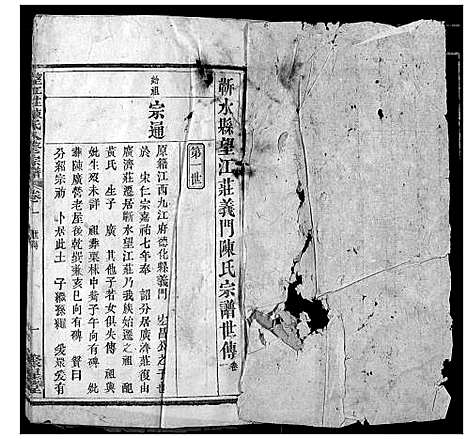 蘄水縣望江莊義門陳氏宗譜世傳卷
第一世
始祖
宗通
原籍江西九江府德化縣義門
於 宋仁宗嘉祐七年奉 詔分居廣濟莊復由
廣濟莊遷居蘄水望江莊乃我族始遷之祖 配
黃氏 生子 廣 其他子若女俱失傳 祖與
妣生歿未詳 祖葬栗林中
葬陳廣營老屋後乾 兼亥巳向有碑 贊曰
分豬宗祊 卜居此土 子孫
望江莊陳氏 修宗譜 卷
一